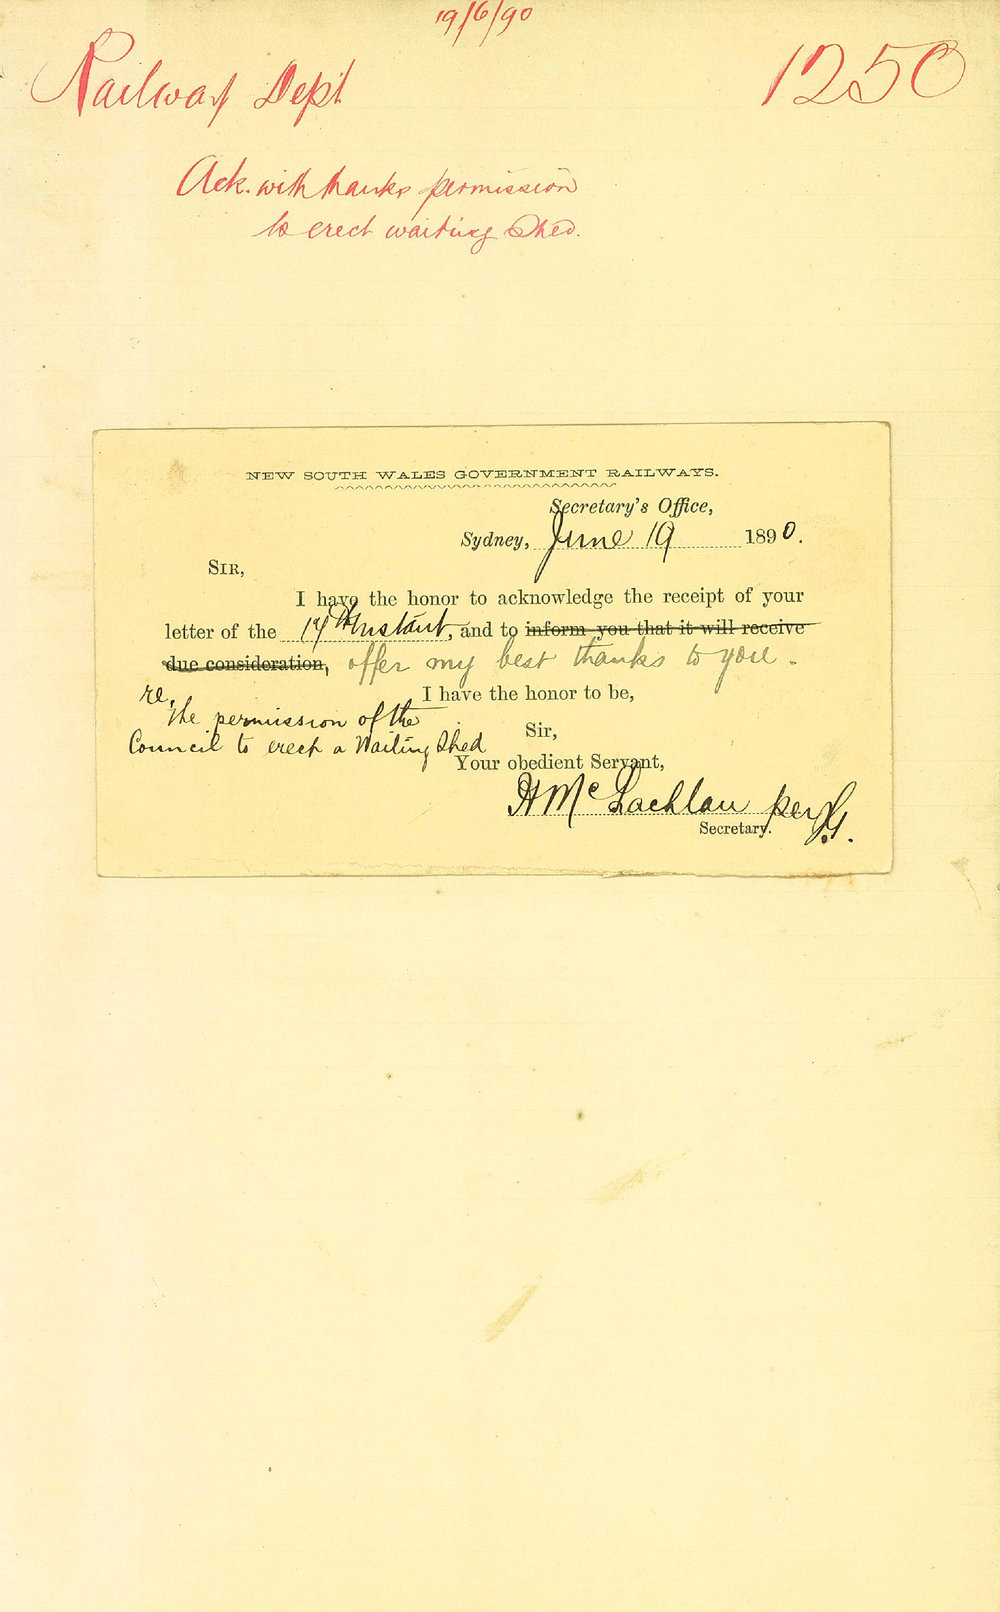 19/6/90
Railway Dept
1250
Ack. with thanks permission
to erect waiting Shed.
NEW SOUTH WALES GOVERNMENT RAILWAYS.
Secretary's Office,
Sydney, June 19 1890.
SIR,
I have the honor to acknowledge the receipt of your
letter of the 17th Instant, and to inform you that it will receive
due consideration, offer my best thanks to you.
re,
I have the honor to be,
the permission of the
Council to erect a Waiting Shed
Sir,
Your obedient Servant,
H McLachlan per
Secretary.